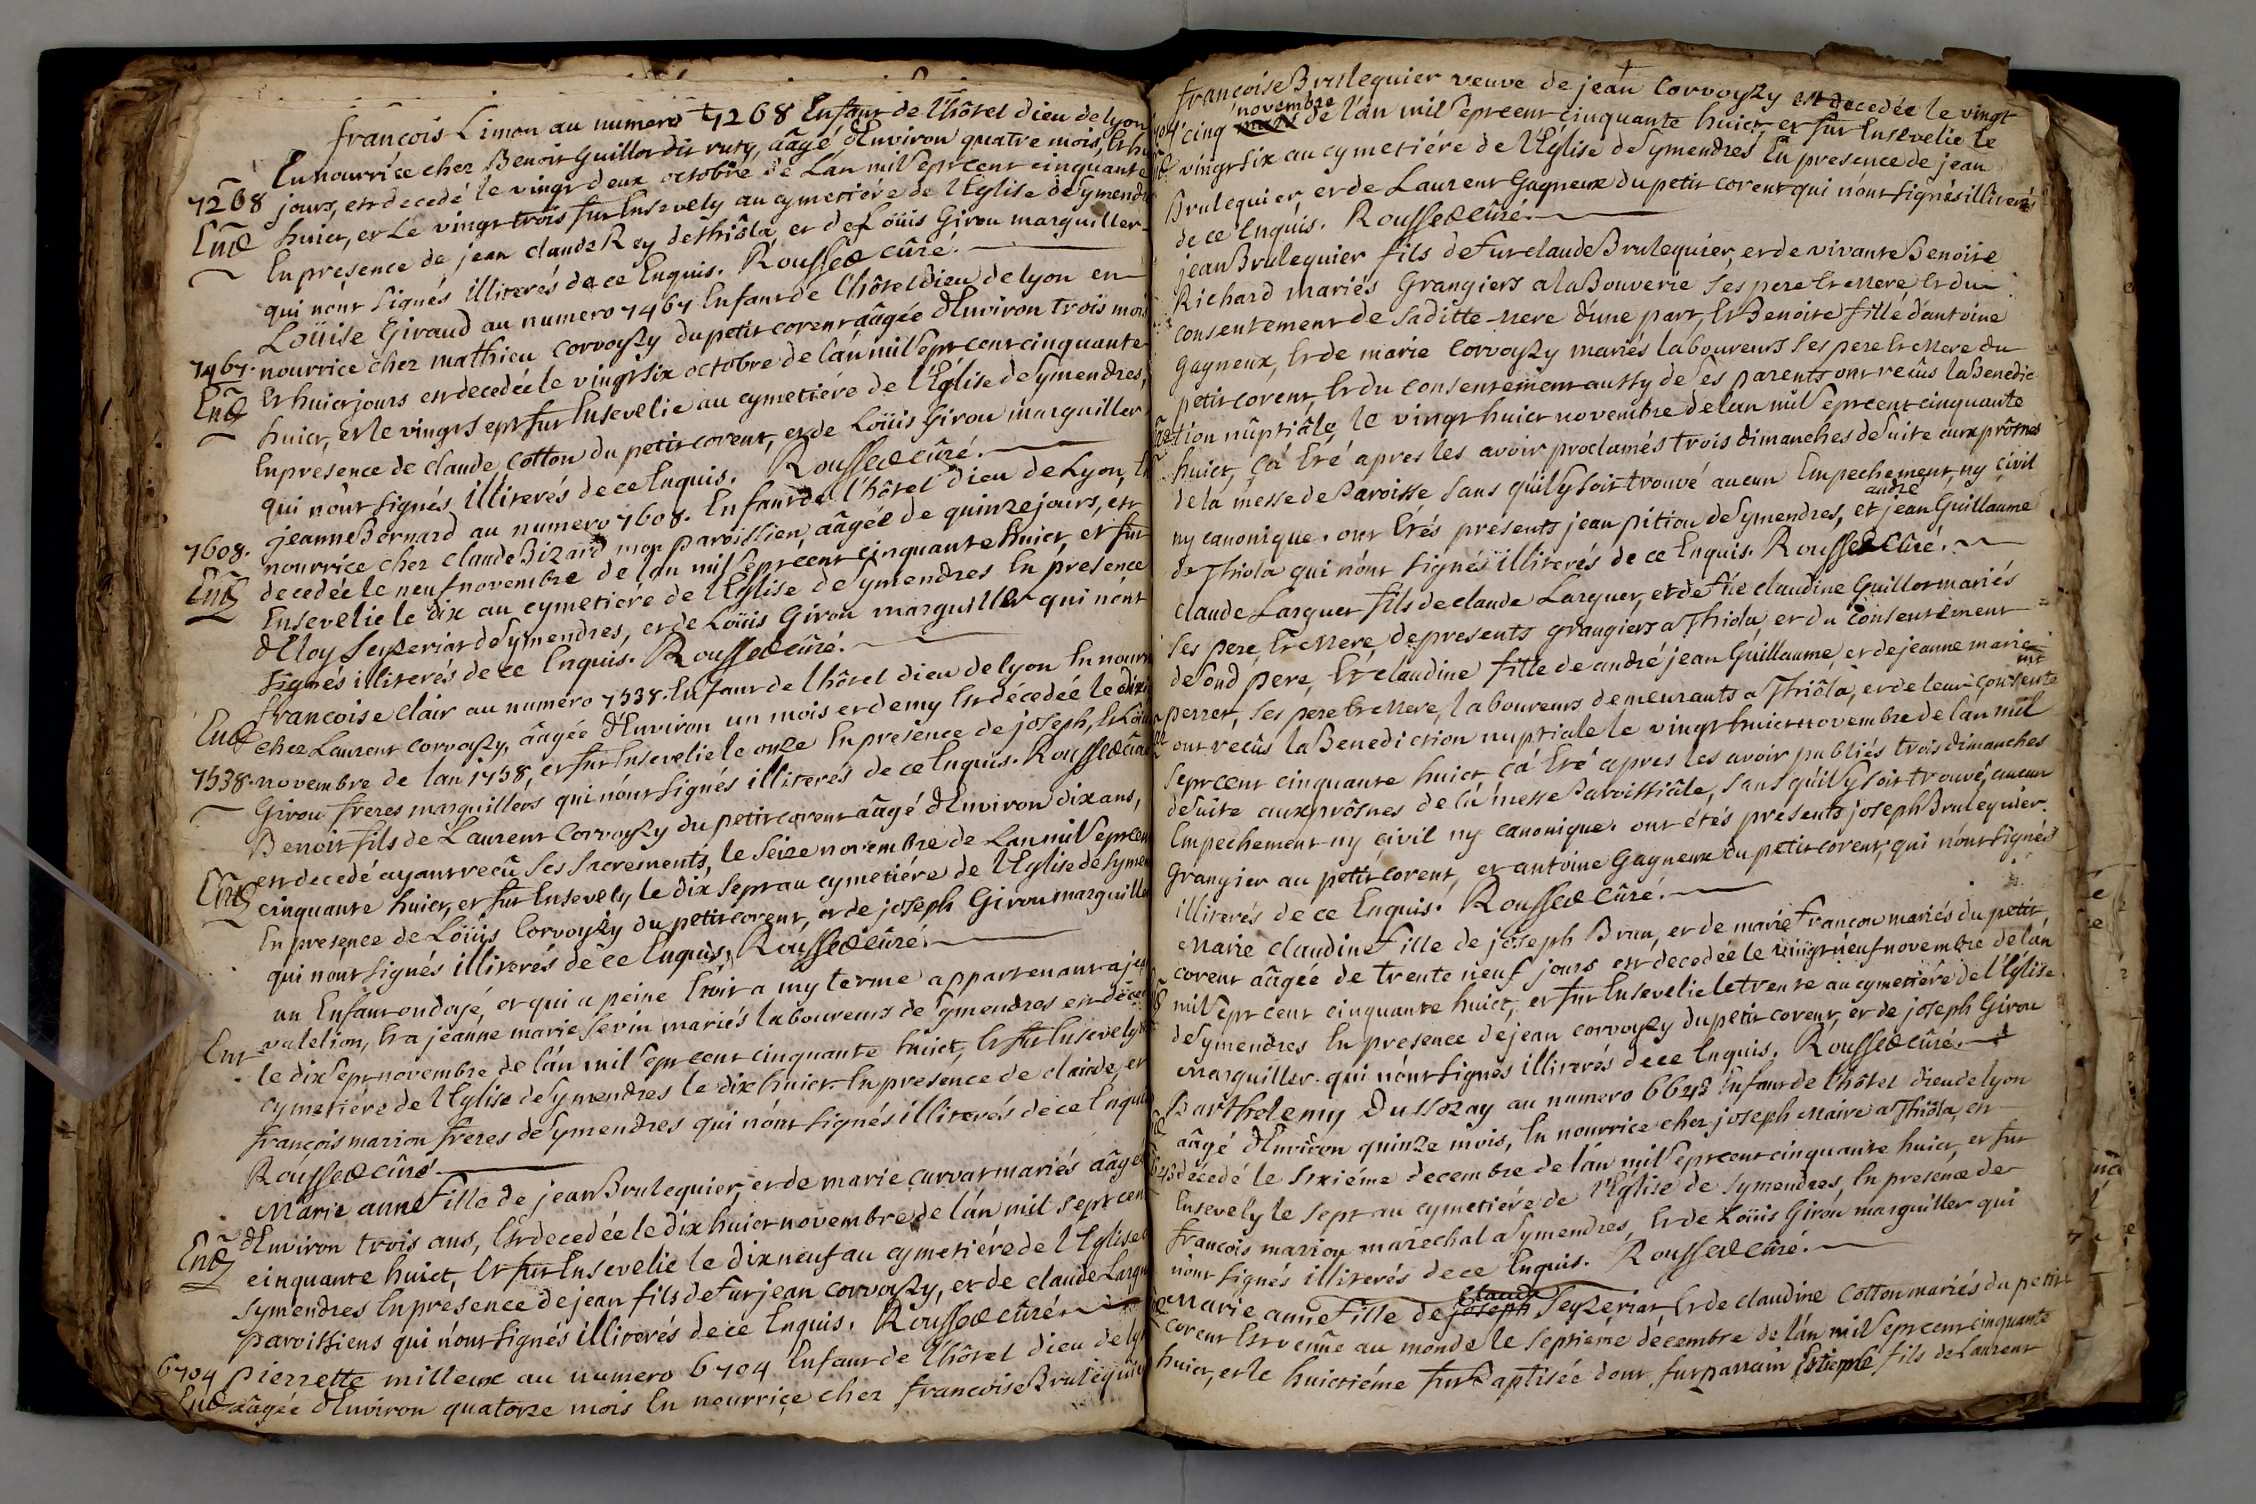 francois Limon au numero 7268 Enfant de l'hôtel dieu de lyon
En nourrice chez Benoit Guillot dit ruty, ââgé d'Environ quatre mois, Et hu
7268 jours, est decedé le vingt deux octobre de l'an mil sept cent cinquante
Ent huict, et Le vingt trois fut Ensevely au cymetiére de l'Eglise de symendre
En presence de jean claude Rey de thiôla, et de Loüis Girou marguiller
qui n'ont signés illiterés de ce Enquis. Roussel cûré.
Loüise Giraud au numero 7467 Enfant de l'hôtel dieu de lyon en
7467. nourrice chez mathieu corvoysy du petit corent ââgée d'Environ trois mois
Ent Et huict jours est decedée le vingt six octobre de l'an mil sept cent cinquante
huict, et le vingt sept fut Ensevelie au cymetiére de l'Eglise de symendres,
En presence de claude cotton du petit corent, et de Loüis Girou marguiller
qui n'ont signés illiterés de ce Enquis. Roussel cûré.
jeanne Bernard au numero 7608. Enfant de l'hôtel dieu de Lyon, En
7608. nourrice chez claude Bizard mon paroissien, ââgée de quinze jours, est
Ent decedée le neuf novembre de l'an mil sept cent cinquante huict, et fut
Ensevelie le dix au cymetiere de l'Eglise de symendres En presence
d'Eloy seyzeriat de symendres, et de Loüis Girou marguiller qui n'ont
signés illiterés de ce Enquis. Roussel cûré.
francoise clair au numero 7538. Enfant de l'hôtel dieu de lyon En nourr
Ent chez Laurent corvoysy, ââgée d'Environ un mois et demy Est décedée le dixi
7538. novembre de l'an 1758, et fut Ensevelie le onze En presence de joseph, Et Loüi
Girou freres marguillers qui n'ont signés illiterés de ce Enquis. Roussel cûré
Benoit fils de Laurent corvoysy du petit corent ââgé d'Environ dix ans,
Ent est decedé ayant recû ses sacrements, le seize novembre de l'an mil sept cent
cinquante huict, et fut Ensevely le dix sept au cymetiére de l'Eglise de symen
En presence de Loüis corvoysy du petit corent, et de joseph Girou marguiller
qui n'ont signés illiterés de ce Enquis. Roussel cûré.
un Enfant ondoyé, et qui a peine Etoit a my terme appartenant a je
Ent valelion, Et a jeanne marie servin mariés laboureurs de symendres est déce
le dix sept novembre de l'an mil sept cent cinquante huict, Et fut Ensevely
cymetiére de l'Eglise de symendres le dix huict En presence de claude, et
françois marion freres de symendres qui n'ont signés illiterés de ce Enquis
Roussel cûré
Marie anne Fille de jean Brulequier, et de marie curvat mariés ââgée
Ent d'Environ trois ans, Est decedée le dix huict novembre de l'an mil sept cent
cinquante huict, Et fut Ensevelie le dix neuf au cymetiére de l'Eglise
symendres En présence de jean fils de Fut jean corvoysy, et de claude Larg
paroissiens qui n'ont signés illiterés de ce Enquis. Roussel cûré
6704 pierrette milleux au numero 6704 Enfant de l'hôtel dieu de ly
Ent ââgée d'Environ quatorze mois En nourriçe chez francoise Brulequier
francoise Brulequier veuve de jean Corvoysy est decedée le vingt
novembre
cinq de l'an mil sept cent cinquante huict, et fut Ensevelie le
vingt six au cymetiére de l'Eglise de symendres En presence de jean
Brulequier, et de Laurent Gagneux du petit corent qui n'ont signés illiterés
de ce Enquis. Roussel cûré.
jean Brulequier fils de Fut claude Brulequier, et de vivante Benoite
Richard mariés Grangiers a la Bouverie ses pere Et Mere Et du
consentement de sa ditte Mere d'une part, Et Benoite fille d'antoine
Gagneux, Et de marie corvoysy mariés laboureurs ses pere Et Mere du
petit corent, Et du consentement aussy de ses parents ont recûs la Benedic
tion nûptiâle, le vingt huict novembre de l'an mil sept cent cinquante
huict, ça Eté apres les avoir proclamés trois dimanches de suite aux prônes
de la messe de Paroisse sans qu'il y soit trouvé aucun Empechement, ny civil
andré
ny canonique. ont Etés presents jean pition de symendres, et jean Guillaume
de Thiola qui n'ont signés illiterés de ce Enquis. Roussel cûré.
claude Larguet fils de claude Larguet, et de Fûe claudine Guillot mariés
ses pere, Et Mere, de presents grangiers a Thiola, et du consentement
de son d pere, Et claudine fille de andré jean Guillaume, et de jeanne marie
perret, ses pere Et Mere, laboureurs demeurants a Thiôla, et de leur consente
mt
ont recûs la Benediction nuptiale le vingt huict novembre de l'an mil
sept cent cinquante huict ça Eté apres les avoir publiés trois dimanches
de suite aux prônes de la messe Paroissiâle, sans qu'il y soit trouvé aucun
Empechement ny civil ny canonique. ont étés presents joseph Brulequier
Grangier au petit corent, et antoine Gagneux du petit corent, qui n'ont signés
illiterés de ce Enquis. Roussel cûré.
Marie claudine Fille de joseph Brun, et de marie Francon mariés du petit
corent ââgée de trente neuf jours est decedée le vingt neuf novembre de l'an
mil sept cent cinquante huict, et fut Ensevelie le trente au cymetiére de l'Eglise
de symendres En presence de jean corvoysy du petit corent, et de joseph Girou
Marguiller. qui n'ont signés illiterés de ce Enquis. Roussel cûré.
Barthelemy Dussozay au numero 6643 Enfant de l'hôtel dieu de lyon
ââgé d'Environ quinze mois, En nourrice chez joseph Maire a Thiôla, est
décedé le sixiéme decembre de l'an mil sept cent cinquante huict, et fut
Ensevely le sept au cymetiére de l'Eglise de symendres, En presence de
francois marion marechal a symendres, Et de Loüis Girou marguiller qui
n'ont signés illiterés de ce Enquis. Roussel cûré.
claude
Marie anne Fille de joseph Seyzeriat Et de claudine Cotton mariés du petit
corent Est venûe au monde le septieme décembre de l'an mil sept cent cinquante
huict, et le huictiéme fut Baptisée dont fut parrain Estienne fils de Laurent